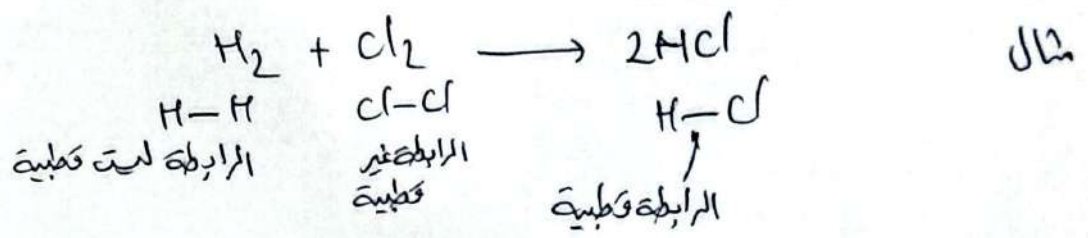 مثال
H₂ + Cl₂ ⟶ 2HCl
H–H Cl–Cl H–Cl
الرابطة ليست قطبية
الرابطة غير
قطبية
الرابطة قطبية